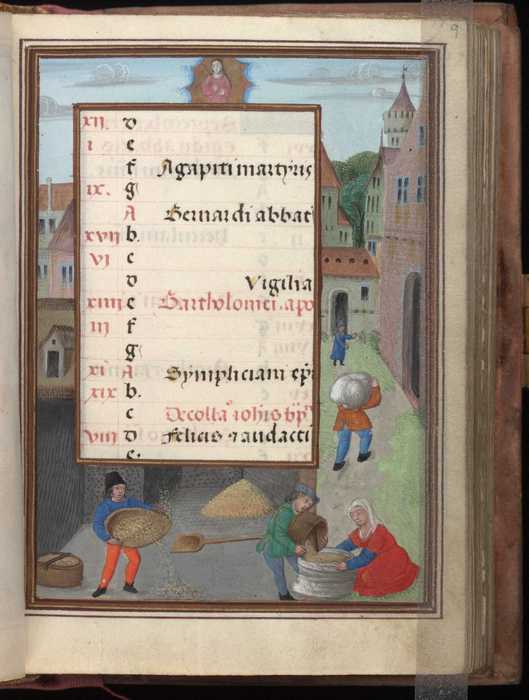 9
xii D
i e
f Agapiti martyris
ix. g
A Bernardi abbat
xvii b.
vi c
D Vigilia
xiiii e Bartholomei. apo
iii f
g
xi A Sympliciani ep
xix b.
c Decolla iohis bp
viii D Felicis ⁊ audacti
e.